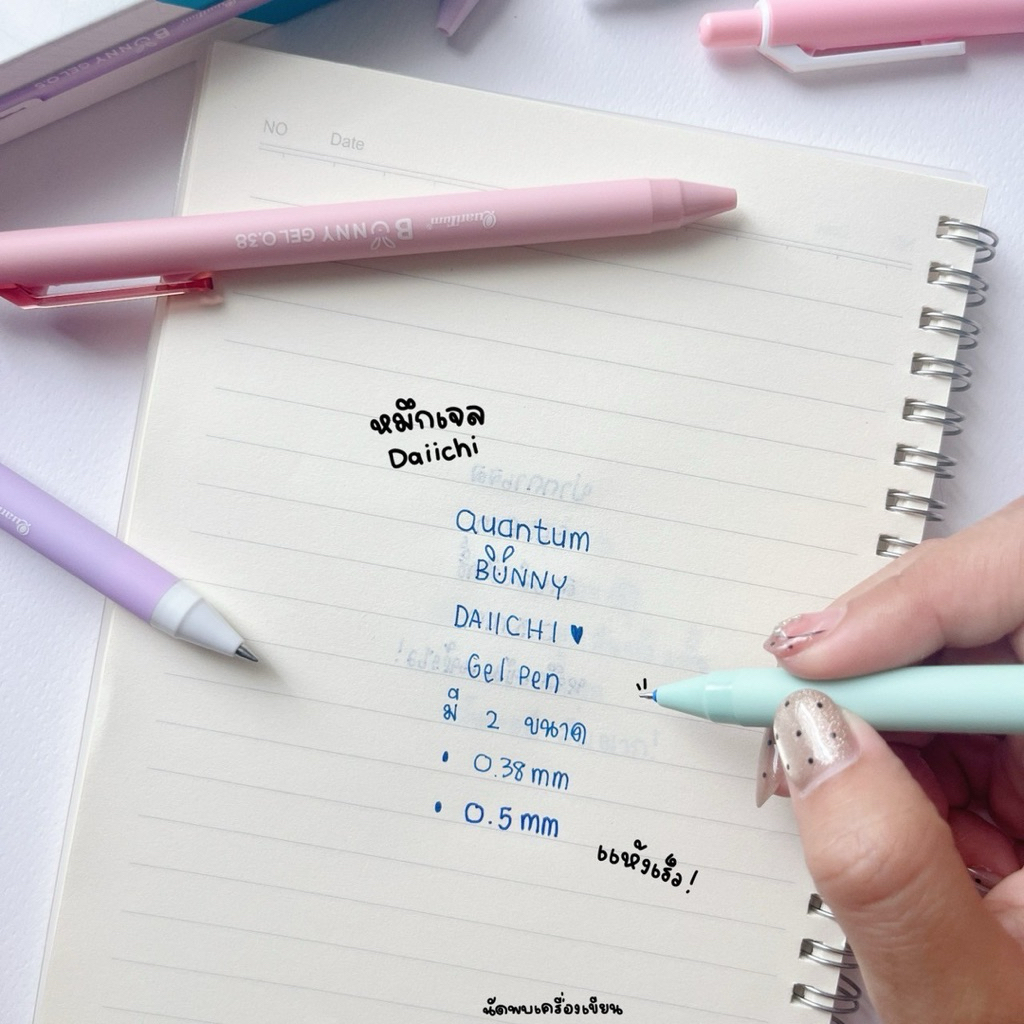 BUNNY GEL 0.5
NO Date
Quantum BUNNY GEL 0.38
หมึกเจล
Daiichi
Quantum
Quantum
BUNNY
DAIICHI ♥
Gel Pen
มี 2 ขนาด
• 0.38 mm
• 0.5 mm
แห้งเร็ว!
นัดพบเครื่องเขียน